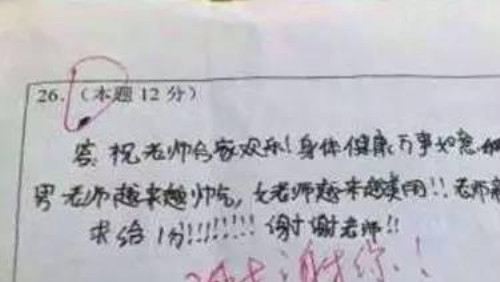 26.（本题12分）
答：祝老师合家欢乐！身体健康万事如意
男老师越来越帅气，女老师越来越美丽!!老师
求给1分!!!!!!!!谢谢老师!!
谢你!